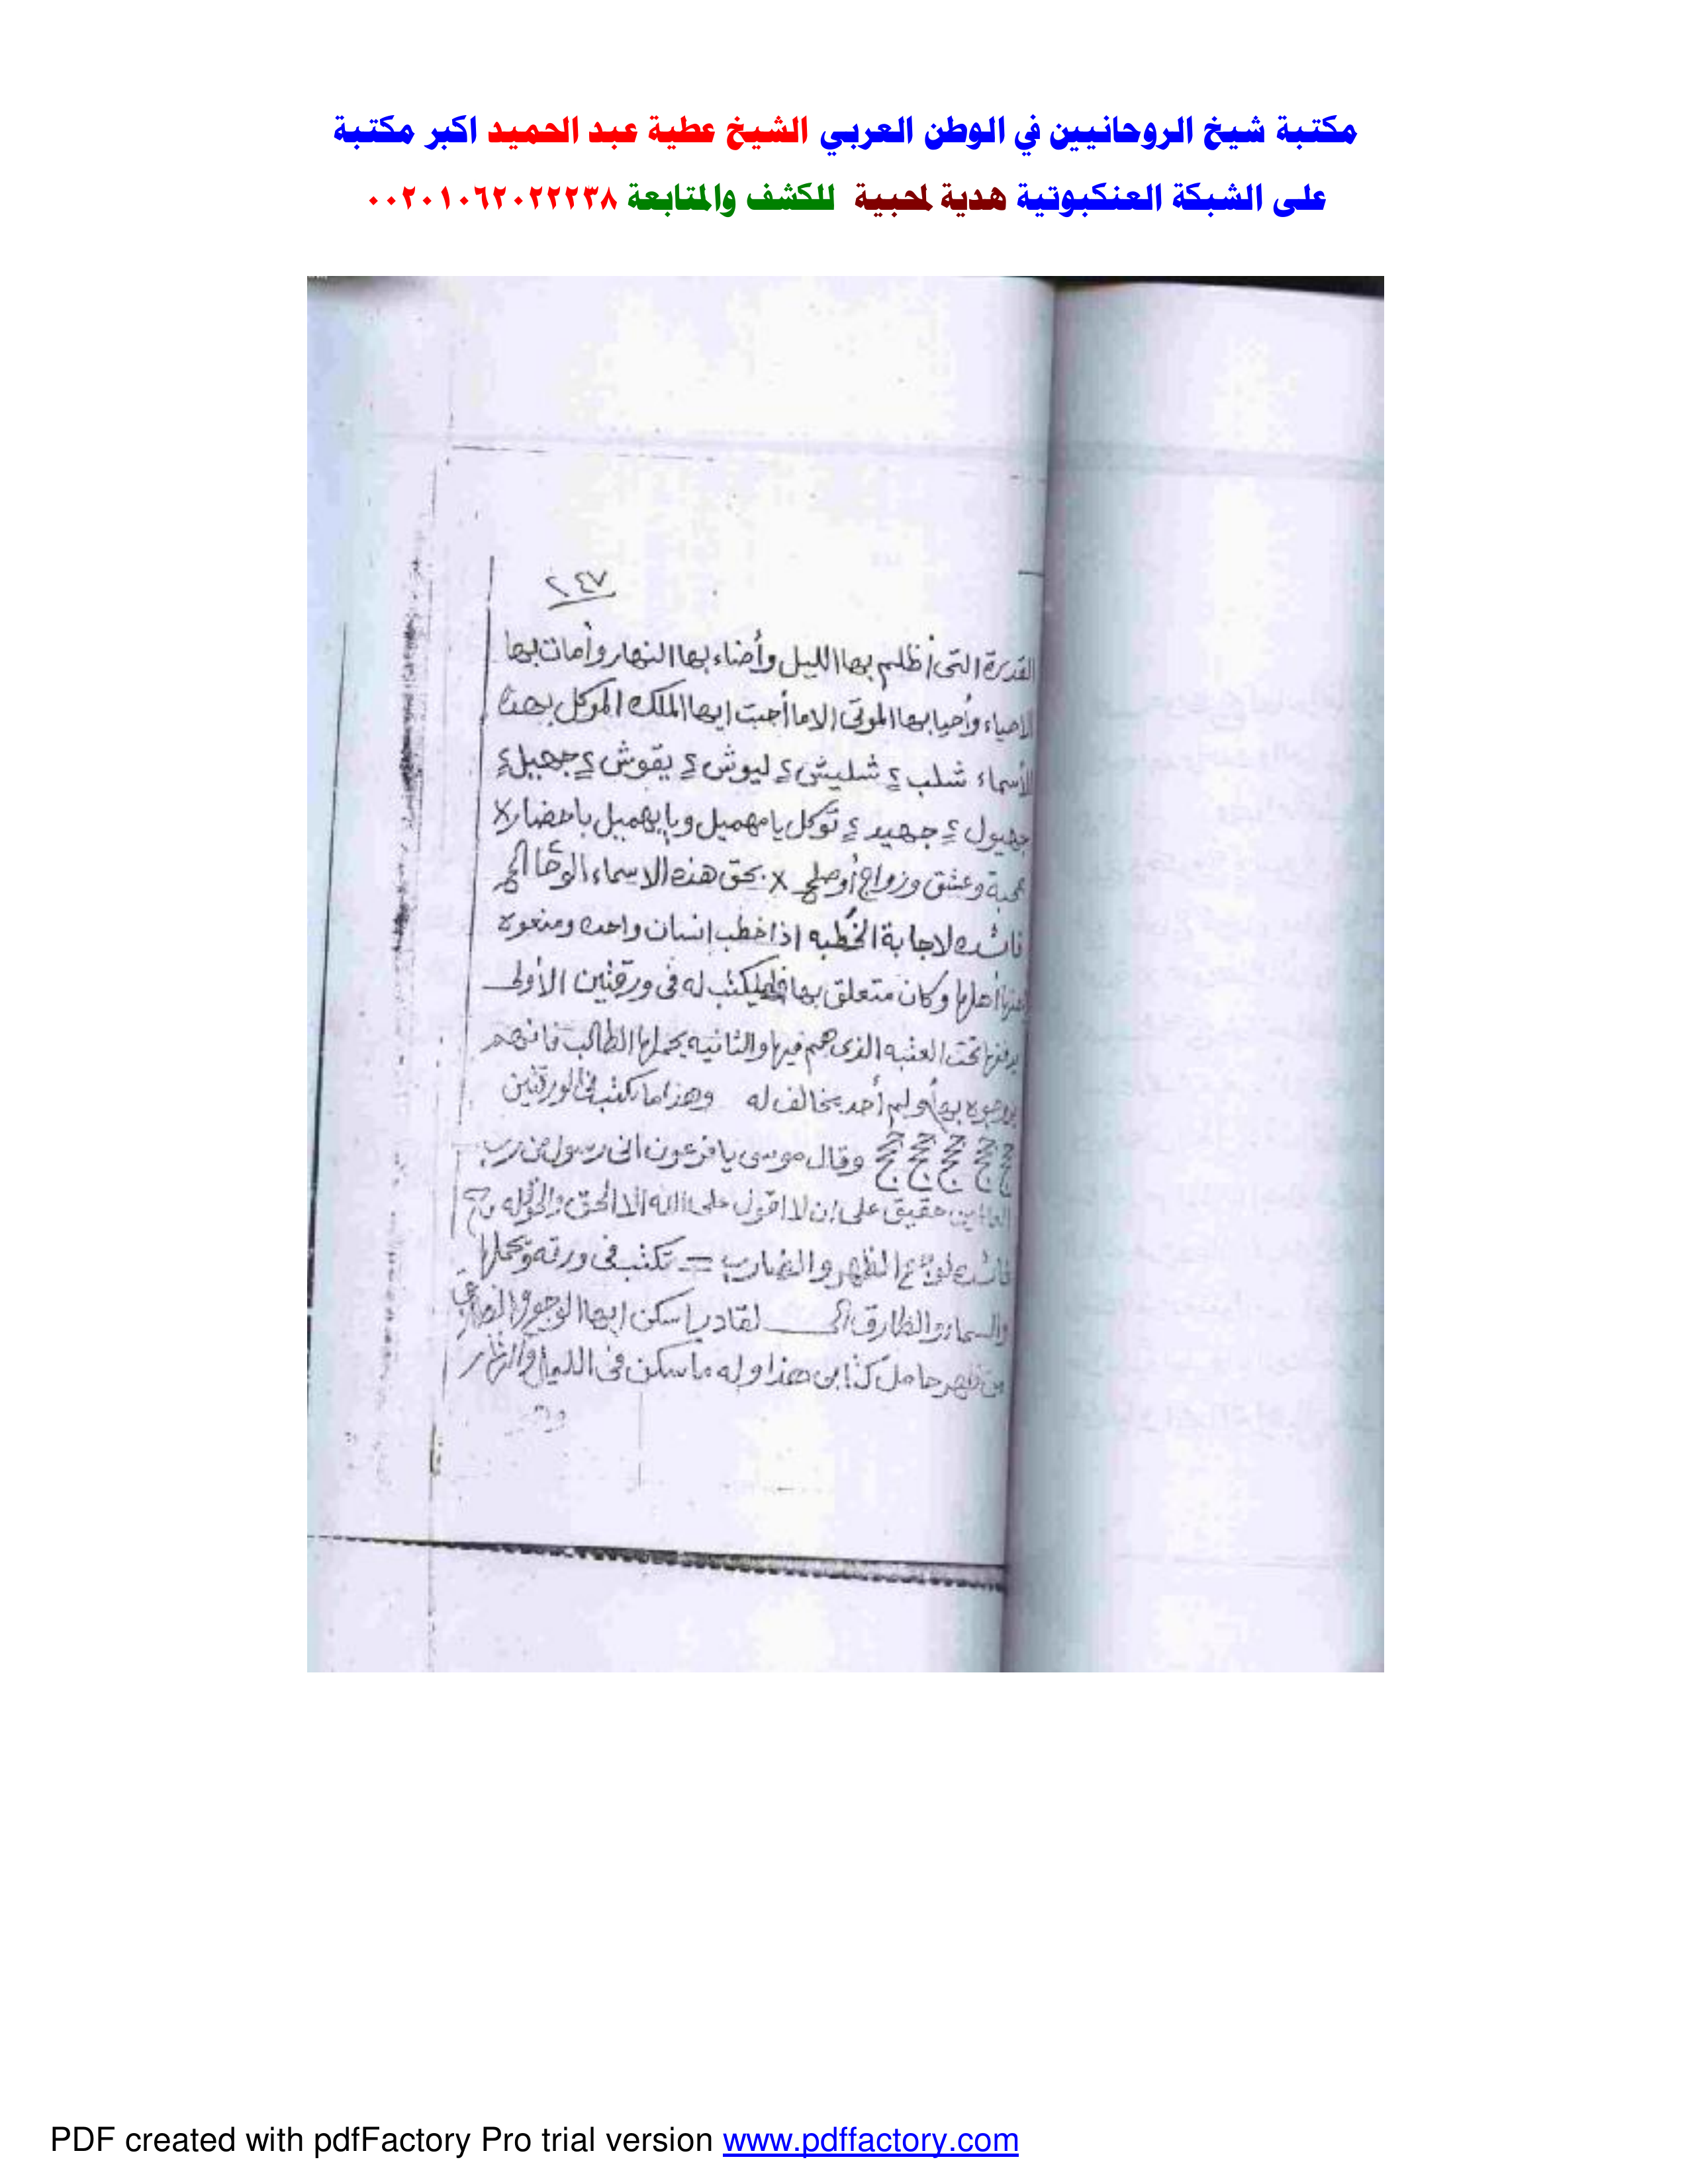 مكتبة شيخ الروحانيين في الوطن العربي الشيخ عطية عبد الحميد اكبر مكتبة
على الشبكة العنكبوتية هدية لمحبية للكشف والمتابعة ٠٠٢٠١٠٦٢٠٢٢٢٣٨
٢٤٧
القدرة التى أظلم بها الليل وأضاء بها النهار وأمات بها
الاحياء وأحيا بها الموتى الا ما أجبت ايها الملك الموكل بهذه
الأسماء شلب ٤ شليش ٤ ليوش ٤ يقوش ٤ جهيل ٤
جهيول ٤ جهيد ٤ توكل يا مهميل ويا يهميل باحضار x
محبة وعشق وزواج أو صلح x بحق هذه الاسماء الوحا
فائده لاجابة الخطبه اذا خطب إنسان واحده ومنعوه
عنها اهلها وكان متعلق بها فليكتب له فى ورقتين الأولى
يدفنها تحت العتبه الذى هم فيها والثانيه يحملها الطالب فانهم
يزوجوه بها ولم أحد يخالف له وهذا ما تكتب فى الورقتين
وقال موسى يا فرعون انى رسول من رب
العالمين حقيق على ان لا اقول على الله الا الحق
فائده لوجع الظهر والضارب = تكتب فى ورقه وتحملها
والسماء والطارق الى لقادر اسكن ايها الوجع والضارب
من ظهر حامل كتابى هذا وله ما سكن فى الليل والنهار
PDF created with pdfFactory Pro trial version www.pdffactory.com